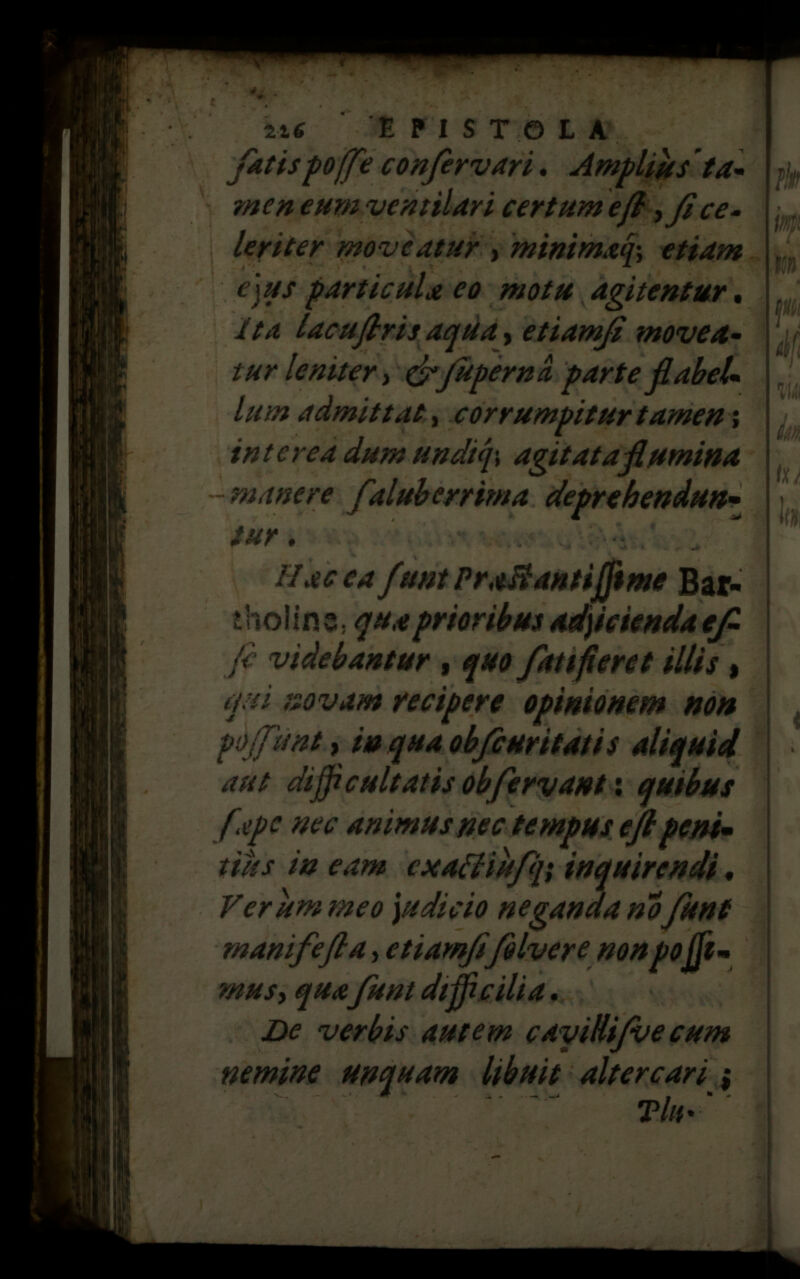 226 EPISTOLA
ſatis poſſe conſervari. Ampliùs ta-
men eum ventilari certum eſt, ſi ce-
leriter moveatur, minimæq; etiam
ejus particulæ eo motu agitentur.
Ita lacuſtris aqua, etiamſi movea-
tur leniter, & ſupernâ parte flabel-
lum admittat, corrumpitur tamen;
interea dum undiq; agitata flumina
manere ſaluberrima deprehendun-
tur.
Hæc ea ſunt Præſtantiſſime Bar-
tholine, quæ prioribus adjicienda eſ-
ſe videbantur, quo ſatiſieret illis,
qui novam recipere opinionem non
poſſunt, in qua obſcuritatis aliquid
aut difficultatis obſervant; quibus
ſæpe nec animus nec tempus eſt peni-
tiùs in eam exactiùſq; inquirendi.
Verùm meo judicio neganda nō ſunt
manifeſta, etiamſi ſolvere non poſſi-
mus, quæ ſunt difficilia.
De verbis autem cavilliſve cum
nemine unquam libuit altercari;
Plu-